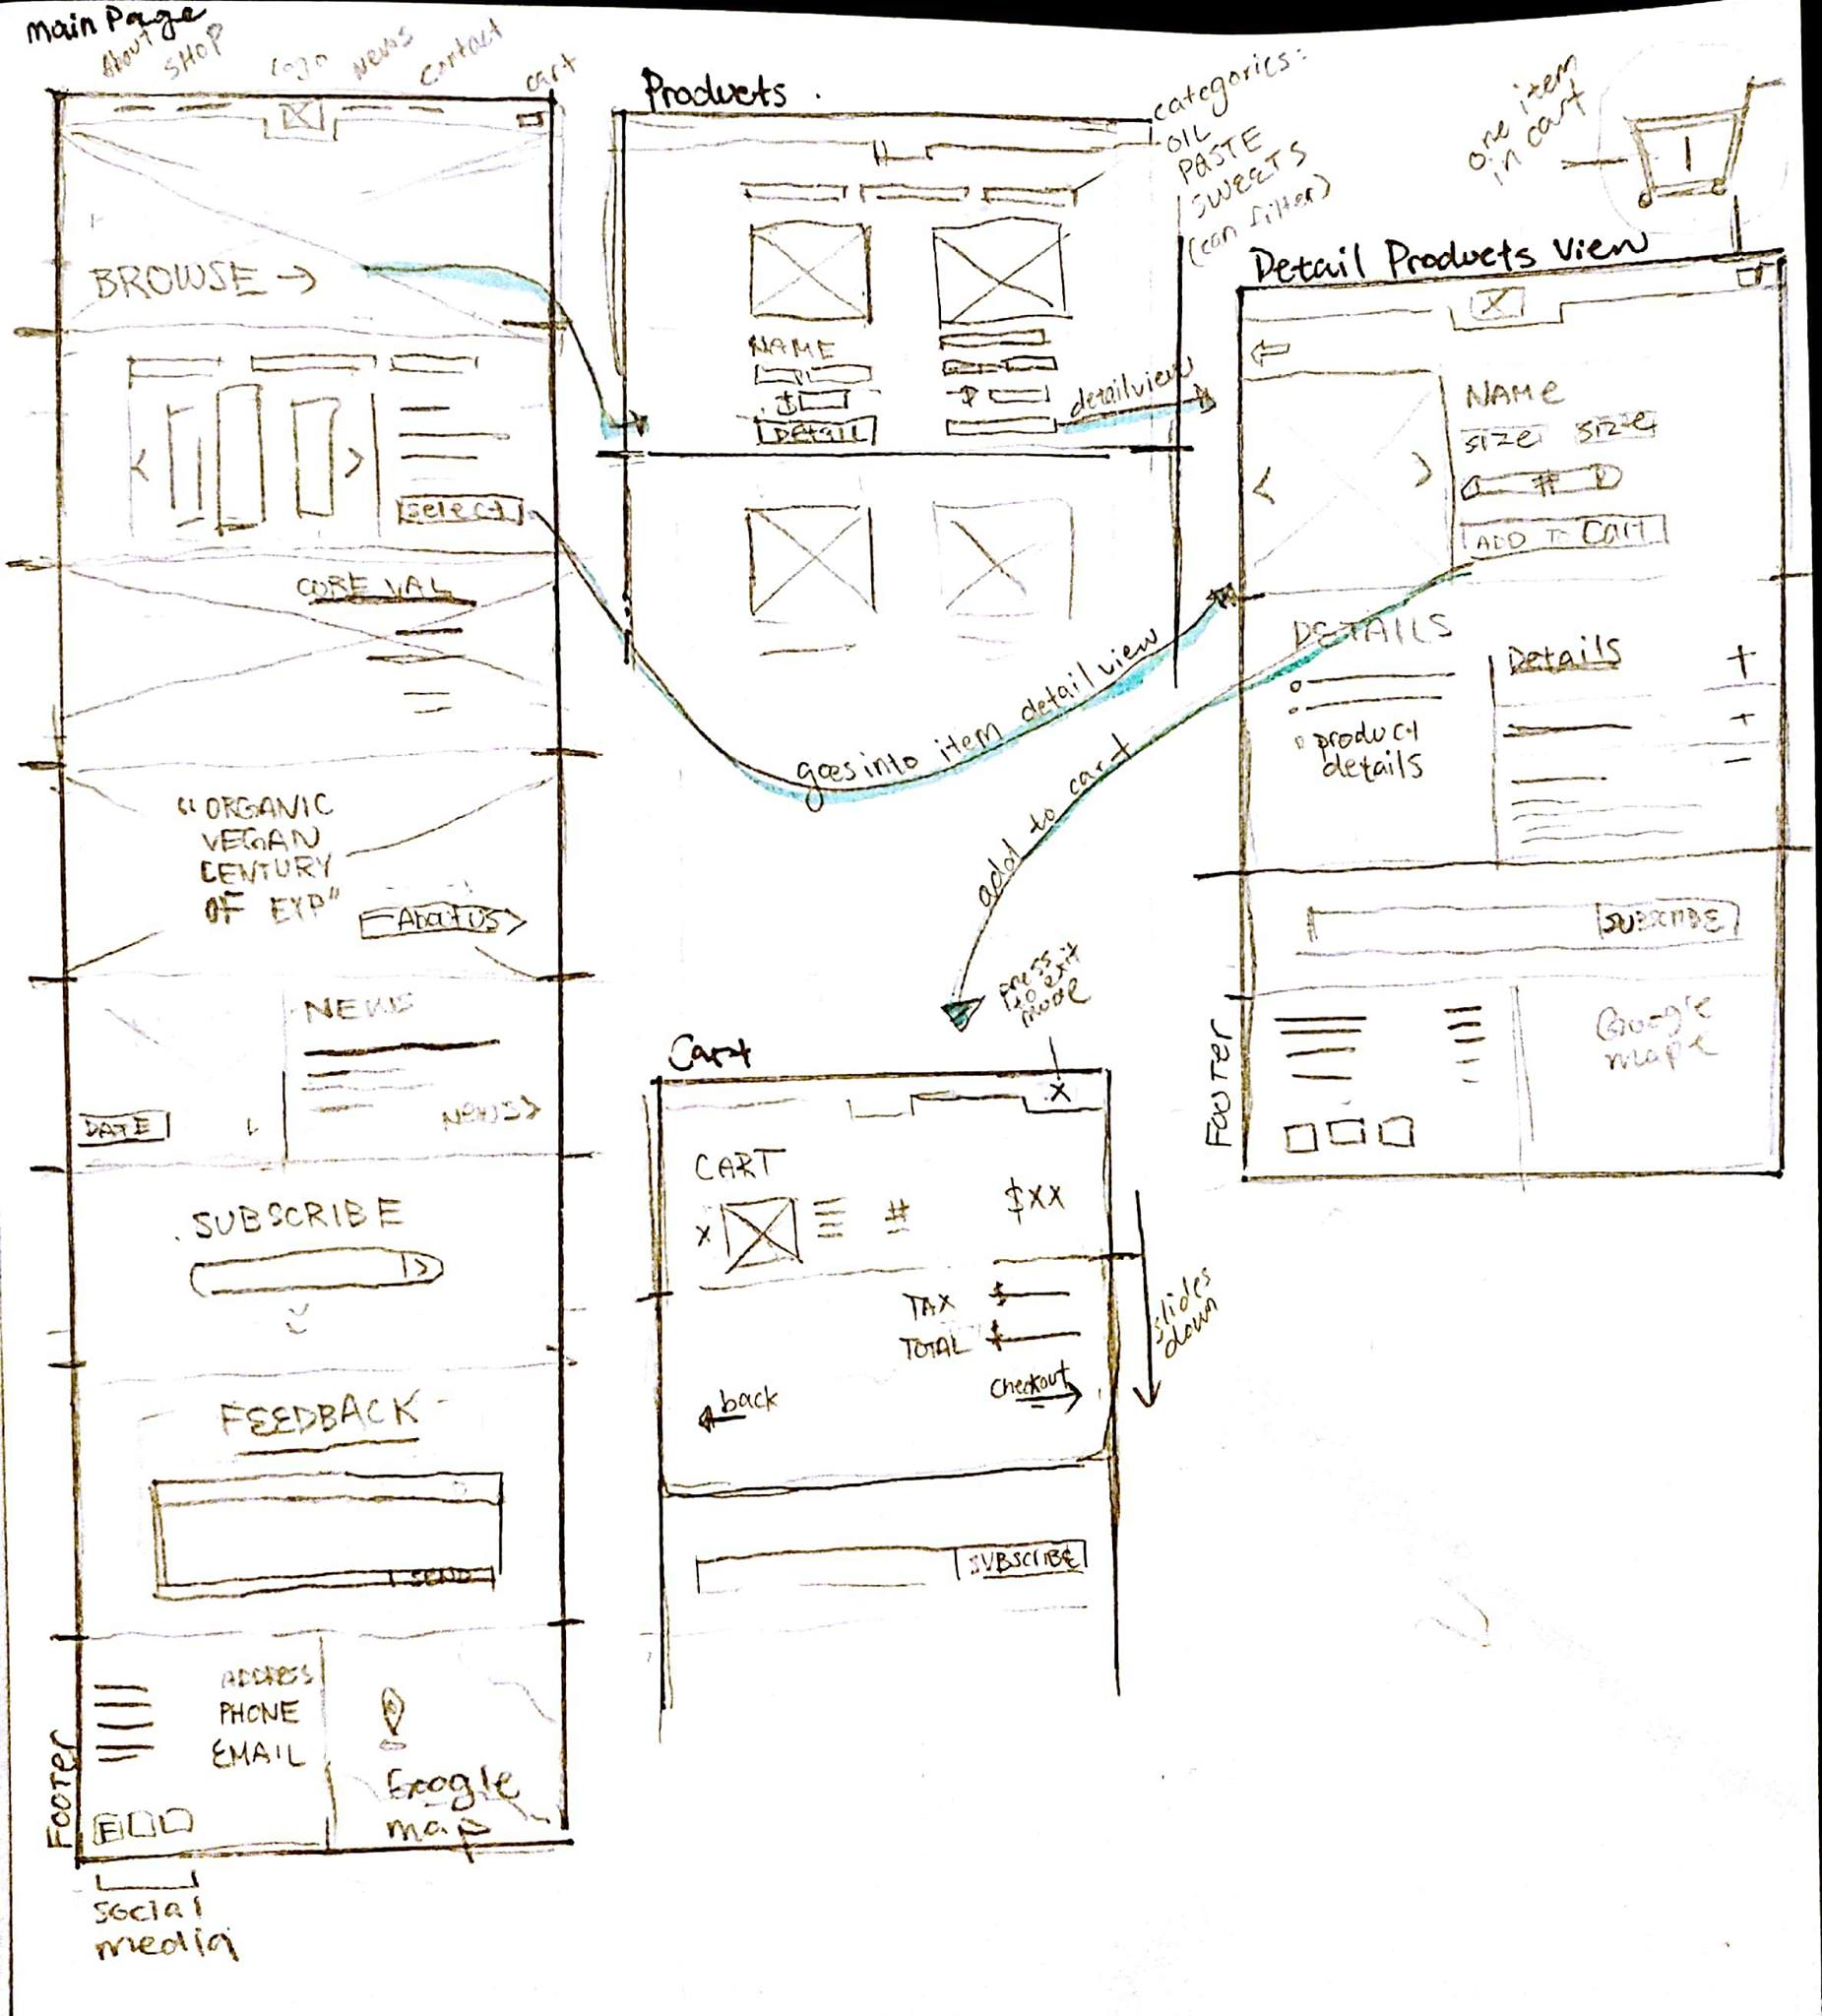 Main Page
About
SHOP
logo
News
Contact
cart
BROWSE →
<
>
Select
CORE VAL
"ORGANIC
VEGAN
CENTURY
OF EXP"
About us >
NEWS
DATE
NEWS >
SUBSCRIBE
>
FEEDBACK
SEND
ADDRESS
PHONE
EMAIL
Google
map
Footer
social
media
Products
categories:
OIL
PASTE
SWEETS
(can filter)
NAME
$
DETAIL
$
detail view
goes into item detail view
add to cart
one item
in cart
1
Detail Products View
NAME
size size
#
ADD TO Cart
<
>
DETAILS
product
details
Details +
+
-
SUBSCRIBE
Footer
Google
maps
press
to exit
mode
Cart
X
CART
X
#
$XX
TAX $
TOTAL $
Checkout
back
slides
down
SUBSCRIBE